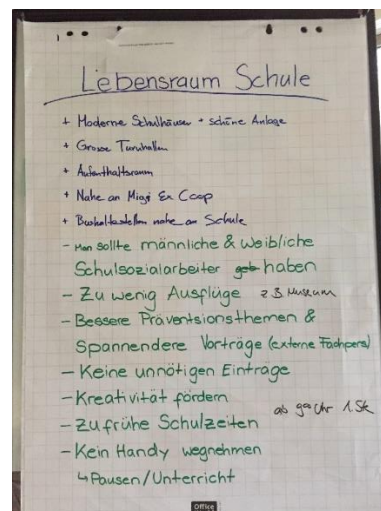 Lebensraum Schule
+ Moderne Schulhäuser + schöne Anlage
+ Grosse Turnhallen
+ Aufenthaltsraum
+ Nahe an Migi & Coop
+ Bushaltestellen nahe an Schule
- Man sollte männliche & weibliche
Schulsozialarbeiter haben
- Zu wenig Ausflüge z B. Museum
- Bessere Präventionsthemen &
Spannendere Vorträge (externe Fachpers)
- Keine unnötigen Einträge
- Kreativität fördern
- Zu frühe Schulzeiten ab 9 Uhr 1. Stk
- Kein Handy wegnehmen
↳ Pausen/Unterricht
Office